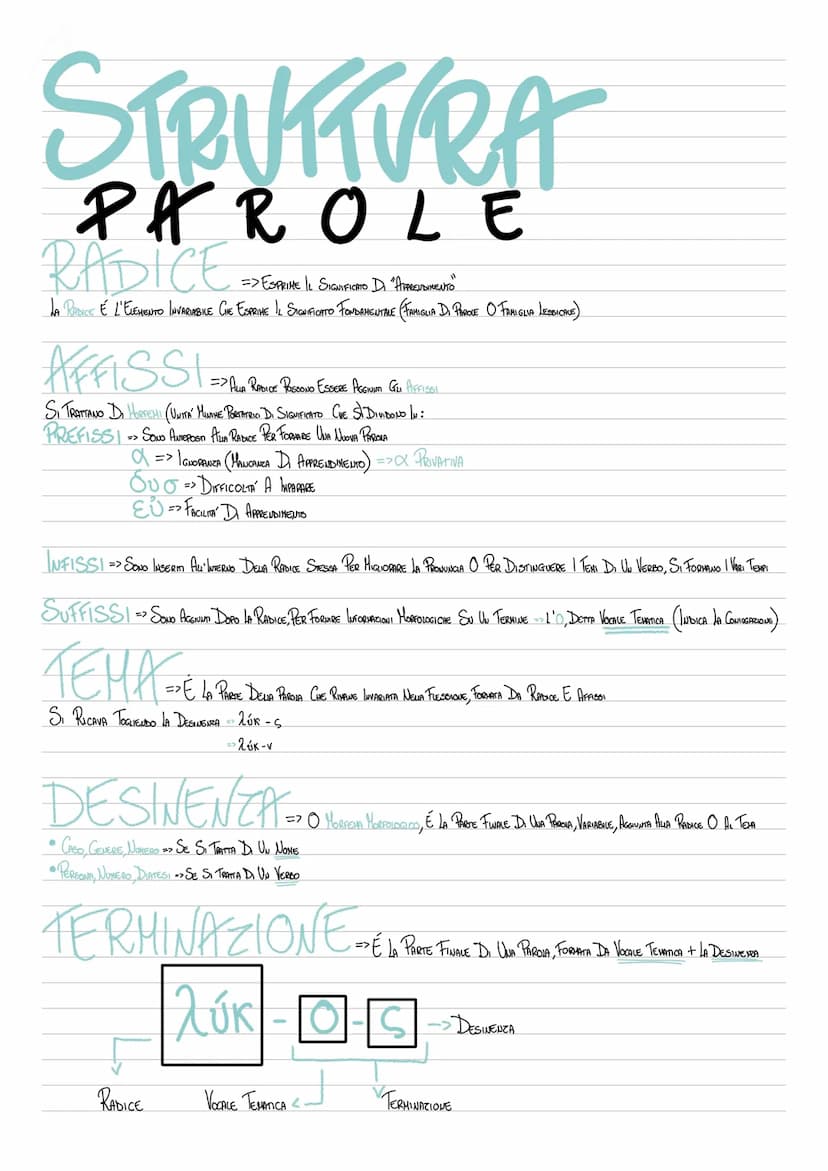 STRUTTURA
PAROLE
RADICE => ESPRIME IL SIGNIFICATO DI "APPRENDIMENTO"
LA RADICE É L'ELEMENTO INVARIABILE CHE ESPRIME IL SIGNIFICATO FONDAMENTALE (FAMIGLIA DI PAROLE O FAMIGLIA LESSICALE)
AFFISSI => ALLA RADICE POSSONO ESSERE AGGIUNTI GLI AFFISSI
SI TRATTANO DI MORFEMI (UNITA' MINIME PORTATRICI DI SIGNIFICATO CHE SI DIVIDONO IN:
PREFISSI => SONO ANTEPOSTI ALLA RADICE PER FORMARE UNA NUOVA PAROLA
α => IGNORANZA (MANCANZA DI APPRENDIMENTO) => α PRIVATIVA
δυσ => DIFFICOLTA' A IMPARARE
εὐ => FACILITA' DI APPRENDIMENTO
INFISSI => SONO INSERITI ALL'INTERNO DELLA RADICE STESSA PER MIGLIORARE LA PRONUNCIA O PER DISTINGUERE I TEMI DI UN VERBO, SI FORMANO I VARI TEMPI
SUFFISSI => SONO AGGIUNTI DOPO LA RADICE, PER FORNIRE INFORMAZIONI MORFOLOGICHE SU UN TERMINE => L'O, DETTA VOCALE TEMATICA (INDICA LA CONIUGAZIONE)
TEMA => É LA PARTE DELLA PAROLA CHE RIMANE INVARIATA NELLA FLESSIONE, FORMATA DA RADICE E AFFISSI
SI RICAVA TOGLIENDO LA DESINENZA => λύκ - ς
=> λύκ - ν
DESINENZA => O MORFEMA MORFOLOGICO, É LA PARTE FINALE DI UNA PAROLA, VARIABILE, AGGIUNTA ALLA RADICE O AL TEMA
• CASO, GENERE, NUMERO => SE SI TRATTA DI UN NOME
• PERSONA, NUMERO, DIATESI => SE SI TRATTA DI UN VERBO
TERMINAZIONE => É LA PARTE FINALE DI UNA PAROLA, FORMATA DA VOCALE TEMATICA + LA DESINENZA
λύκ - Ο - ς -> DESINENZA
RADICE VOCALE TEMATICA TERMINAZIONE